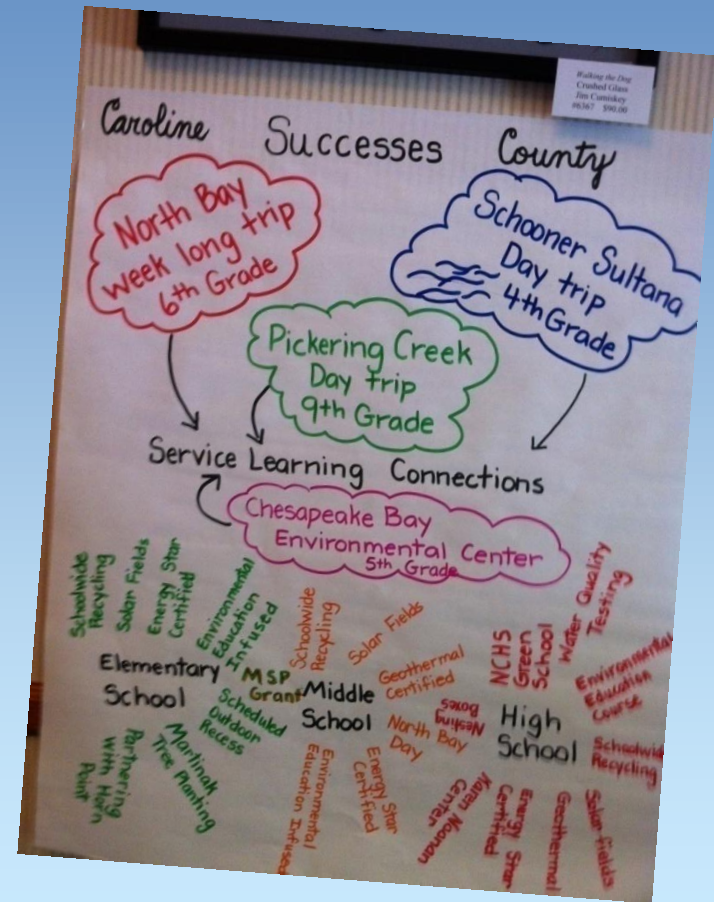 Walking the Dog
Crushed Glass
Jim Cumiskey
#6367 $90.00
Caroline Successes County
North Bay
week long trip
6th Grade
Schooner Sultana
Day trip
4th Grade
Pickering Creek
Day trip
9th Grade
Service Learning Connections
Chesapeake Bay
Environmental Center
5th Grade
Schoolwide
Recycling
Solar Fields
Energy Star
Certified
Environmental
Education
Infused
Elementary
School
MSP
Grant
Scheduled
Outdoor
Recess
Martinak
Tree Planting
Partnering
with Horn
Point
Schoolwide
Recycling
Solar Fields
Geothermal
Certified
Middle
School
North Bay
Day
Energy Star
Certified
Environmental
Education Infused
NCHS
Green
School
Water Quality
Testing
Environmental
Education
Course
Nesting
Boxes
High
School
Schoolwid
Recycling
Karen Noonan
Center
Energy Star
Certified
Geothermal
Solar fields